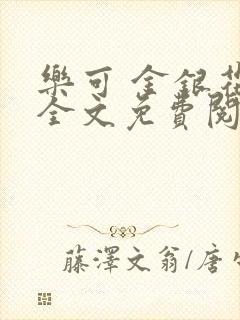 樂可 金銀花
全文免費閱
藤澤文翁/唐